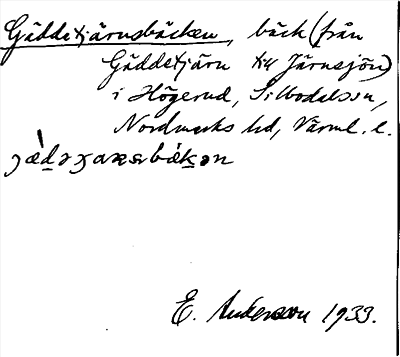 Gäddetjärnsbäcken, bäck (från
Gäddetjärn till Järnsjön)
i Högerud, Silbodalssn,
Nordmarks hd, Värml. l.
E. Andersson 1933.